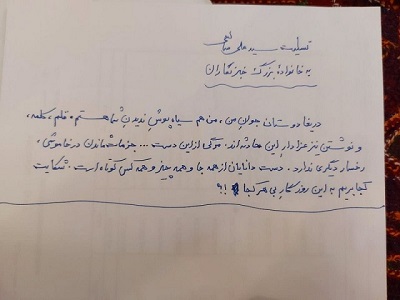 تسلیت سید علی صالحی
به خانوادهٔ بزرگ خبرنگاران
دریغا دوستان جوانِ من، من هم سیاه‌پوشِ ندیدنِ شما هستم، قلم، کلمه،
و نوشتن نیز عزادار این حادثه‌اند. مرگی از این دست ... جز مات ماندن در خاموشی،
رخسار دیگری ندارد. دست دانایان از همه جا و همه چیز و همه کس کوتاه است. شکایت
کجا بریم به این روزگارِ بی هر کجا !؟